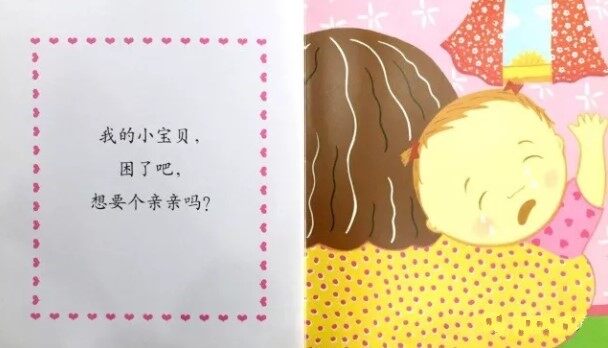 我的小宝贝，
困了吧，
想要个亲亲吗？